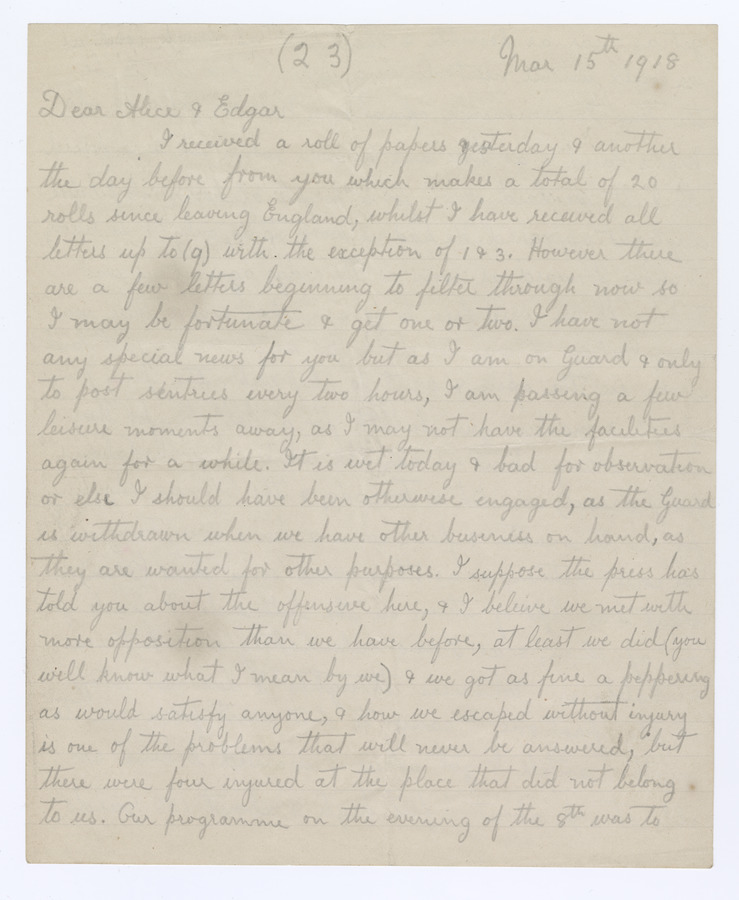 (23) Mar 15th 1918
Dear Alice & Edgar
I received a roll of papers yesterday & another
the day before from you which makes a total of 20
rolls since leaving England, whilst I have received all
letters up to (9) with. the exception of 1 & 3. However there
are a few letters beginning to filter through now so
I may be fortunate & get one or two. I have not
any special news for you but as I am on Guard & only
to post sentries every two hours, I am passing a few
leisure moments away, as I may not have the facilities
again for a while. It is wet today & bad for observation
or else I should have been otherwise engaged, as the Guard
is withdrawn when we have other business on hand, as
they are wanted for other purposes. I suppose the press has
told you about the offensive here, & I beleive we met with
more opposition than we have before, at least we did (you
will know what I mean by we) & we got as fine a peppering
as would satisfy anyone, & how we escaped without injury
is one of the problems that will never be answered, but
there were four injured at the place that did not belong
to us. Our programme on the evening of the 8th was to